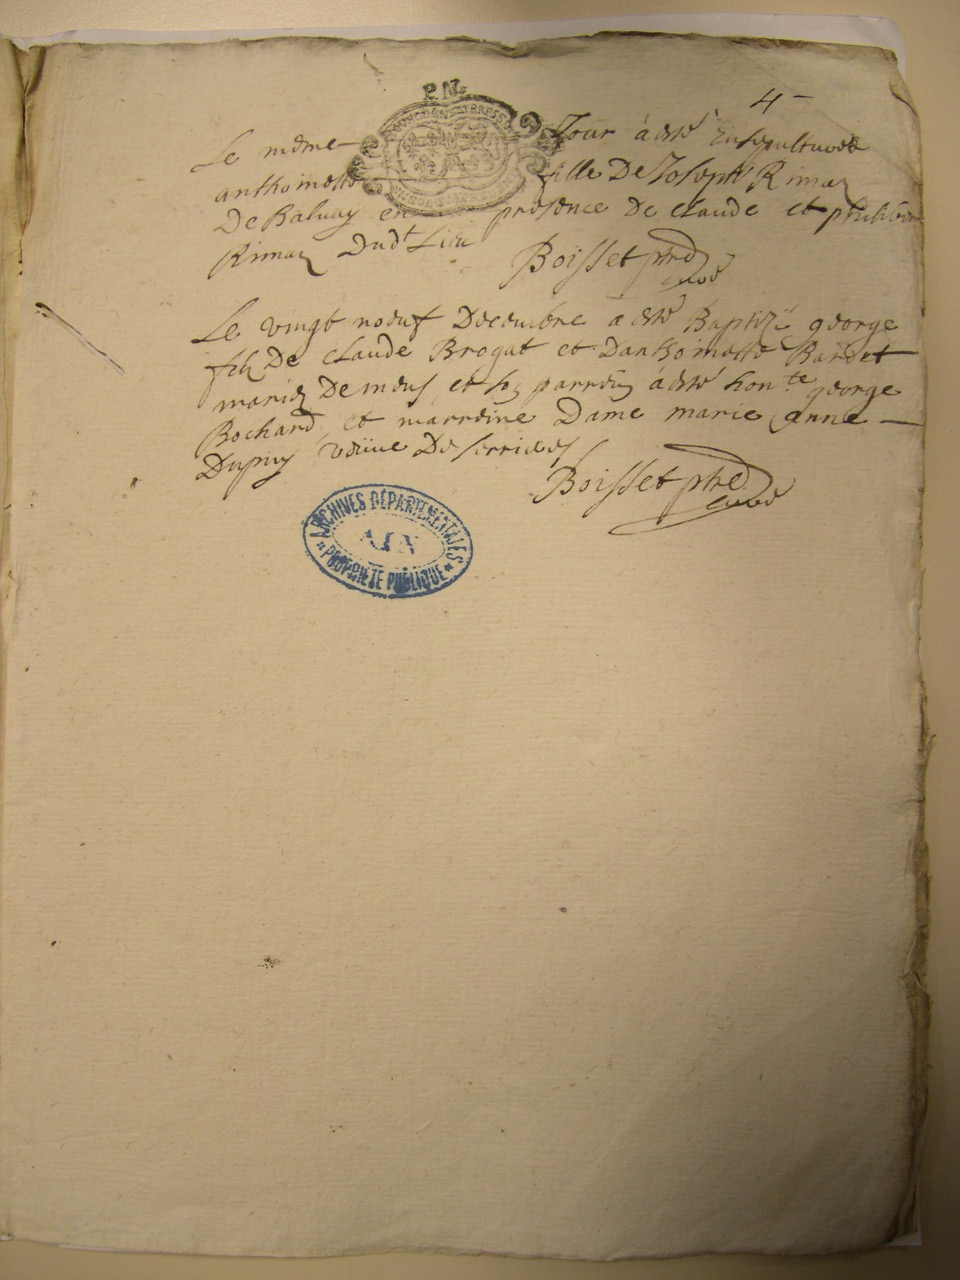 4
P. N.
Le mdme Jour à été Ensepulturée
anthoinette fille De Joseph Rimaz
De Baluay en présence de claude et philibert
Rimaz Dudt Lieu Boisset ptre
curé
Le vingt noeuf Decembre a été Baptizé george
fils De claude Brogat et Danthoinette Bardet
mariez De meus et so parrein à été hon.te george
Bochard et marreine Dame marie anne
Dupuy veüue De
Boisset ptre
curé
ARCHIVES DÉPARTEMENTALES
AIN
PROPRIÉTÉ PUBLIQUE